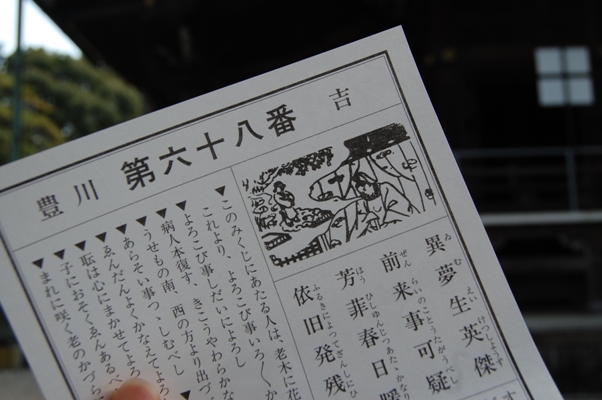 豊川 第六十八番 吉
異夢生英傑
前来事可疑
芳菲春日暖
依旧発残
▼このみくじにあたる人は、老木に花
これより、よろこび事いろ〱か
よろこび事しだいによろし
▼病人本復す、きこうやわらかな
▼うせもの南、西の方より出づ
▼あらそい事つゝしむべし
▼ゑんだんよくかなえてよろ
▼耘は心にまかせてよろ
▼子におそくゑんあるべ
▼まれに咲く老のかづら